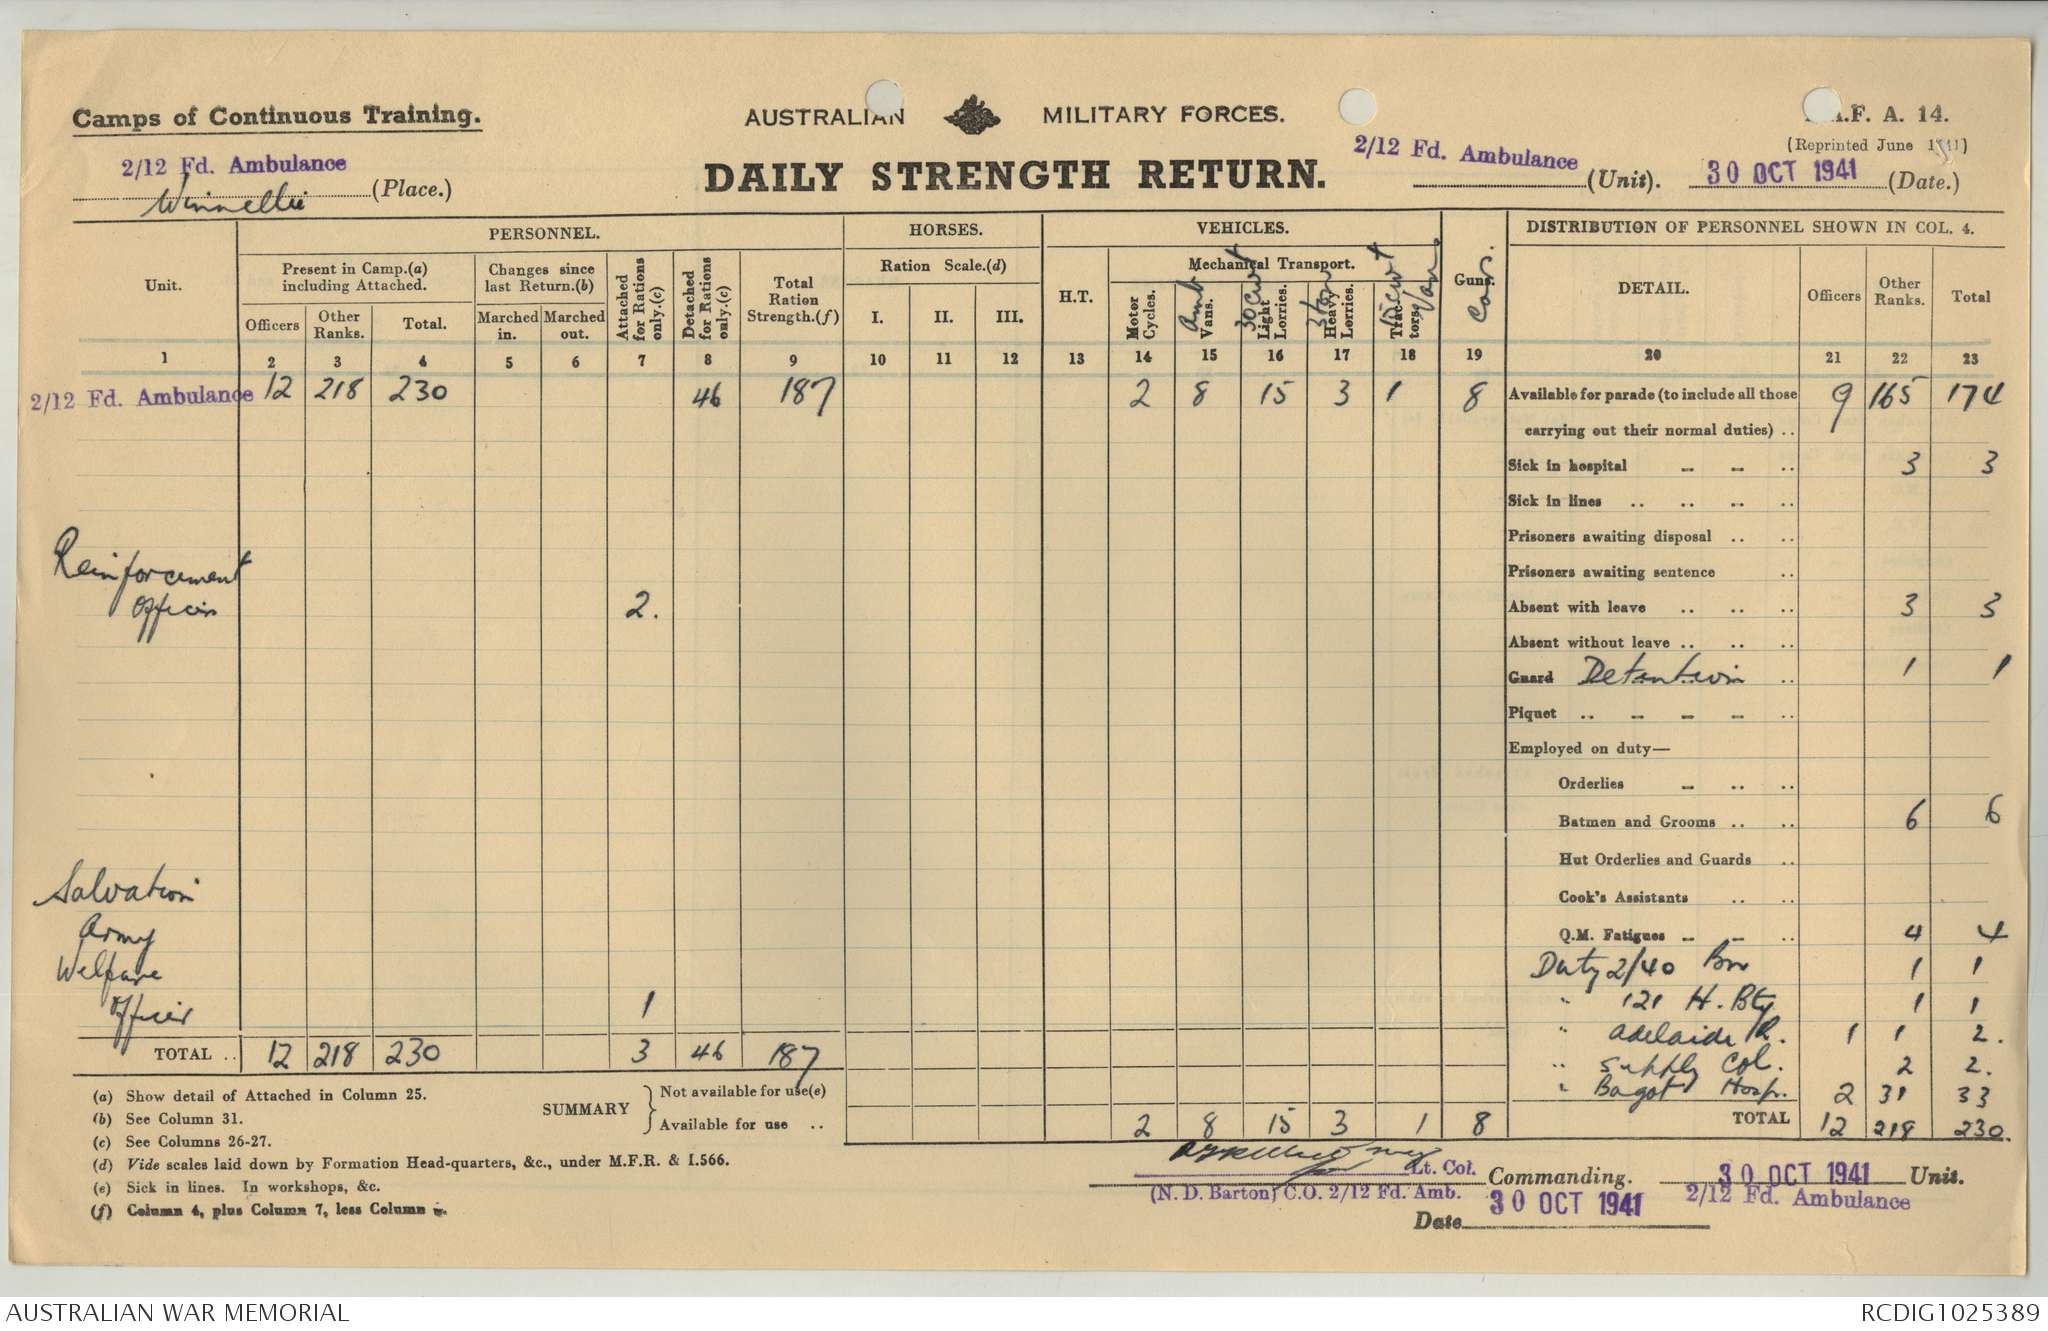 Camps of Continuous Training.
AUSTRALIAN MILITARY FORCES.
A.F. A. 14.
(Reprinted June 1941)
2/12 Fd. Ambulance
Winnellie (Place.)
DAILY STRENGTH RETURN.
2/12 Fd. Ambulance (Unit).
30 OCT 1941 (Date.)
Unit.
PERSONNEL.
HORSES.
VEHICLES.
DISTRIBUTION OF PERSONNEL SHOWN IN COL. 4.
Present in Camp.(a) including Attached.
Changes since last Return.(b)
Attached for Rations only.(c)
Detached for Rations only.(c)
Total Ration Strength.(f)
Ration Scale.(d)
H.T.
Mechanical Transport.
Guns. Cars.
DETAIL.
Officers
Other Ranks.
Total
Officers
Other Ranks.
Total.
Marched in.
Marched out.
I.
II.
III.
Motor Cycles.
Amb Vans.
30 cwt Light Lorries.
3 ton Heavy Lorries.
15 cwt Tractors. Van
1 2 3 4 5 6 7 8 9 10 11 12 13 14 15 16 17 18 19 20 21 22 23
2/12 Fd. Ambulance 12 218 230 46 187 2 8 15 3 1 8
Available for parade (to include all those 9 165 174
carrying out their normal duties) ..
Sick in hospital 3 3
Sick in lines
Prisoners awaiting disposal
Prisoners awaiting sentence
Reinforcement
Officers 2.
Absent with leave 3 3
Absent without leave
Guard Detention 1 1
Piquet
Employed on duty—
Orderlies
Batmen and Grooms 6 6
Hut Orderlies and Guards
Cook's Assistants
Salvation
Army
Welfare
Officer 1
Q.M. Fatigues 4 4
Duty 2/40 Bn 1 1
" 121 H. Bty 1 1
" Adelaide R. 1 1 2.
" Supply Col. 2 2.
" Bagot Hosp. 2 31 33
TOTAL .. 12 218 230 3 46 187
TOTAL 12 218 230.
(a) Show detail of Attached in Column 25.
(b) See Column 31.
(c) See Columns 26-27.
(d) Vide scales laid down by Formation Head-quarters, &c., under M.F.R. & I.566.
(e) Sick in lines. In workshops, &c.
(f) Column 4, plus Column 7, less Column
SUMMARY
Not available for use(e)
Available for use .. 2 8 15 3 1 8
Lt. Col. Commanding. 30 OCT 1941 Unit.
(N. D. Barton) C.O. 2/12 Fd. Amb.
2/12 Fd. Ambulance
Date 30 OCT 1941
AUSTRALIAN WAR MEMORIAL
RCDIG1025389